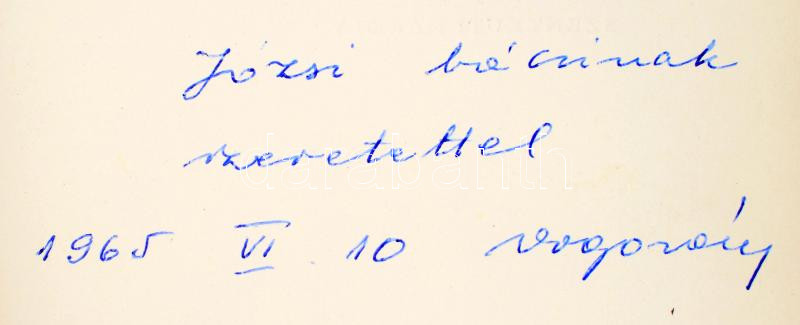 Józsi bácsinak
szeretettel
darabanth
1965 VI. 10